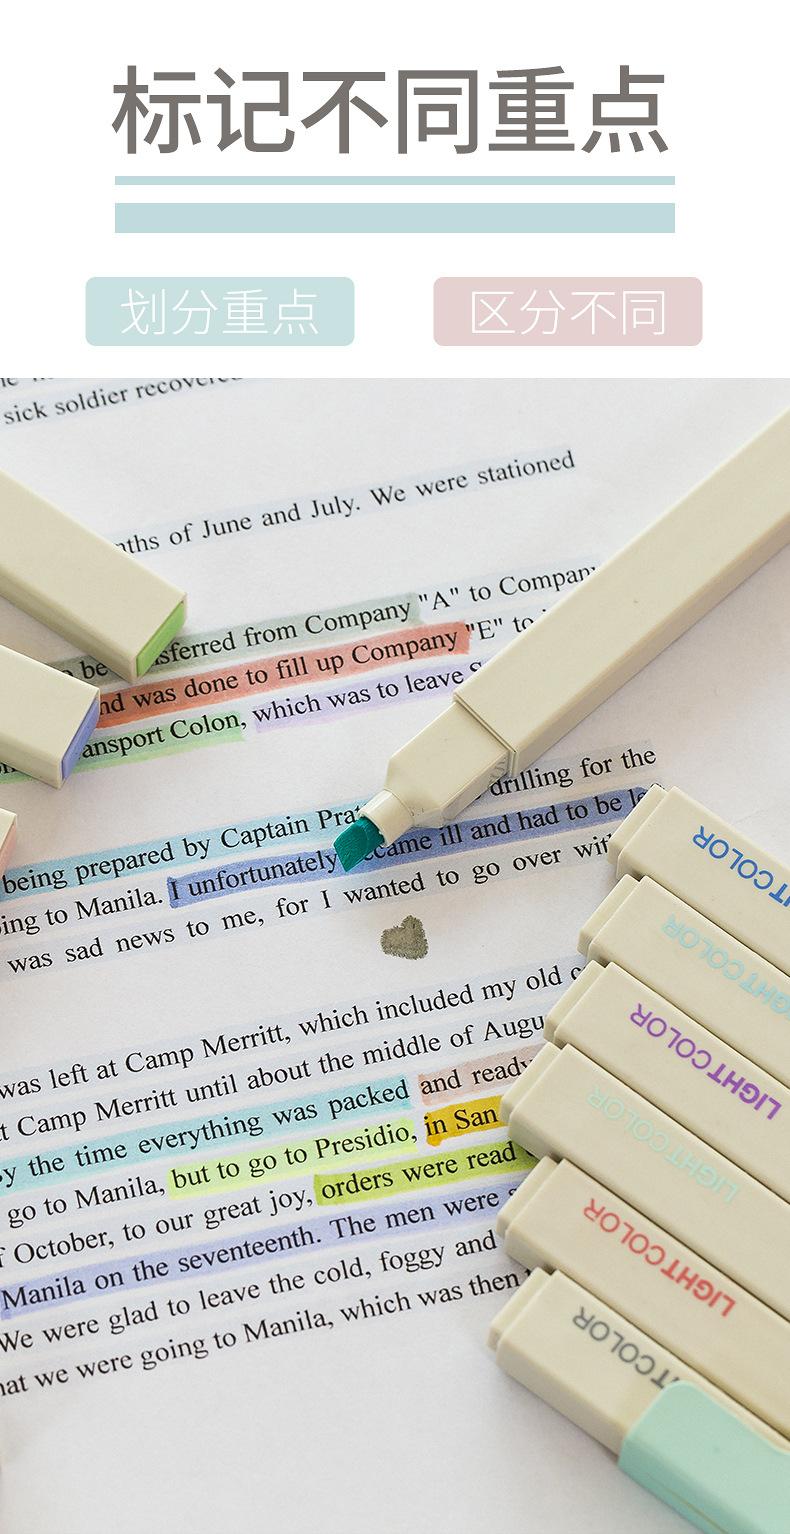 标记不同重点
划分重点
区分不同
sick soldier recovered
nths of June and July. We were stationed
be sferred from Company "A" to Company
nd was done to fill up Company "E" to
ansport Colon, which was to leave
drilling for the
being prepared by Captain Prat
ing to Manila. I unfortunately came ill and had to be
was sad news to me, for I wanted to go over with
was left at Camp Merritt, which included my old
t Camp Merritt until about the middle of Augu
y the time everything was packed and ready
go to Manila, but to go to Presidio, in San
f October, to our great joy, orders were read
Manila on the seventeenth. The men were
We were glad to leave the cold, foggy and
hat we were going to Manila, which was then
HTCOLOR
GHTCOLOR
LIGHTCOLOR
LIGHTCOLOR
LIGHTCOLOR
HTCOLOR